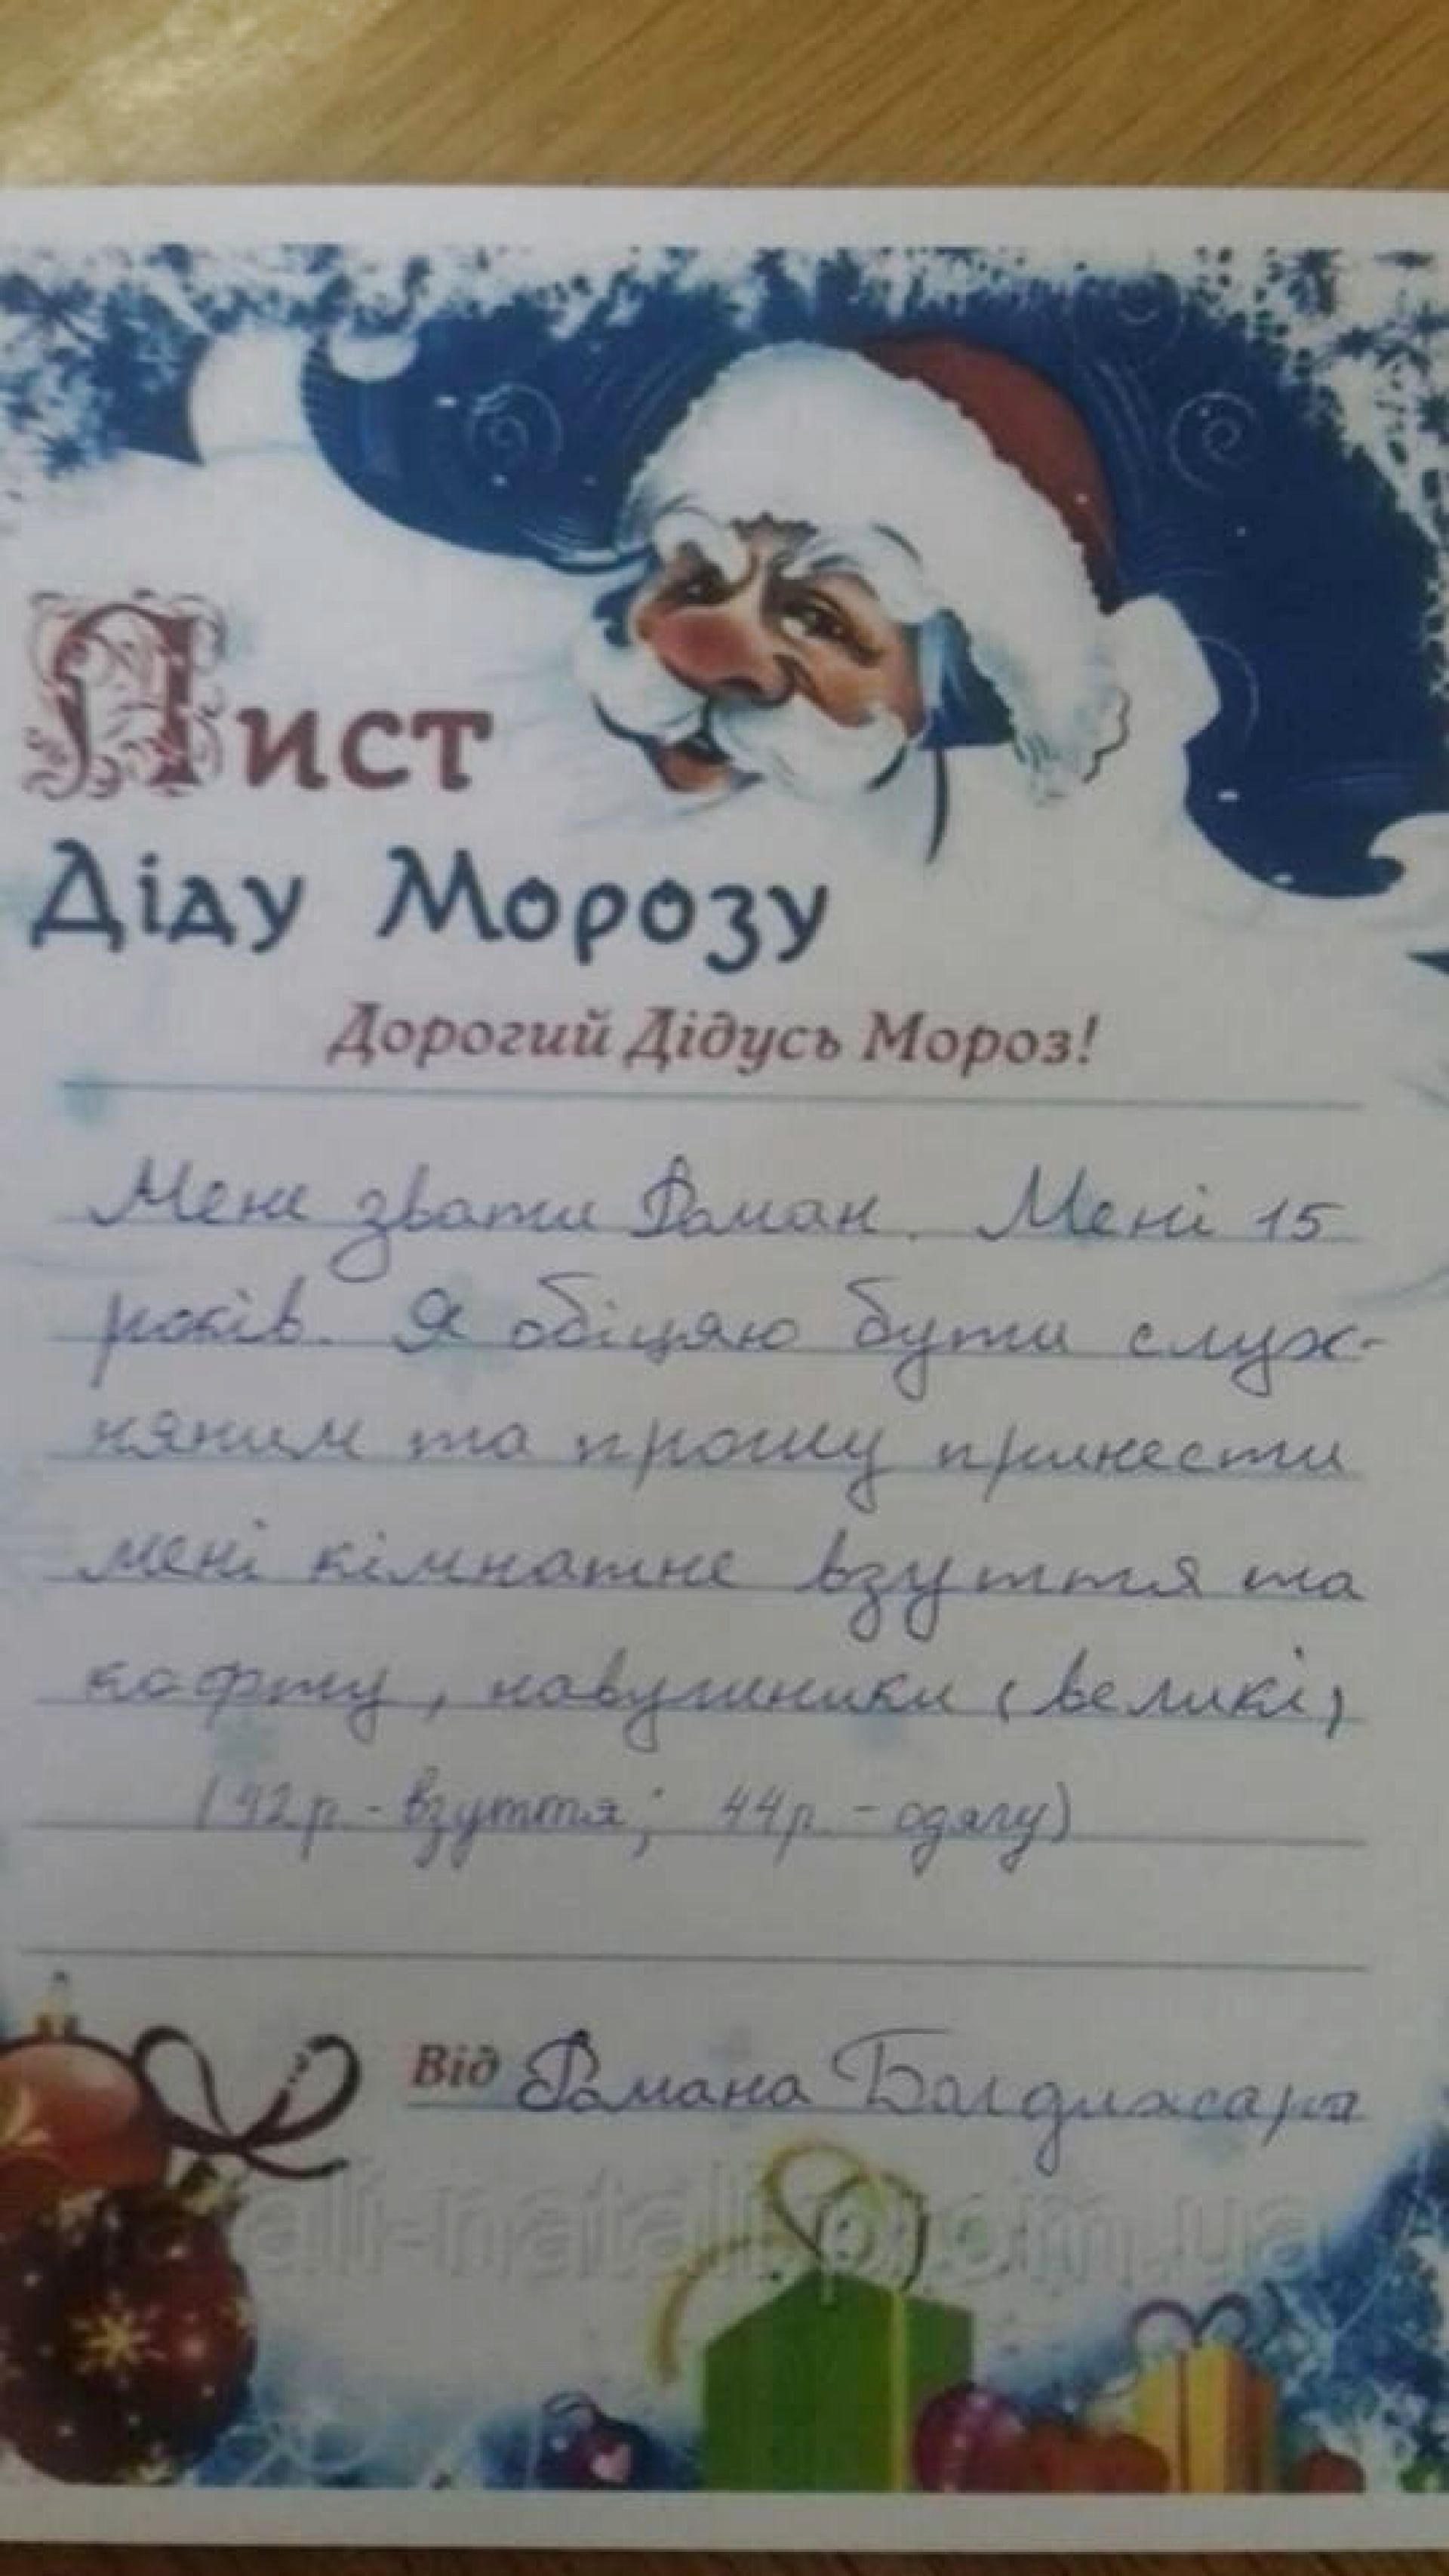 Лист
Діду Морозу
Дорогий Дідусь Мороз!
Мене звати Роман. Мені 15
років. Я обіцяю бути слух-
няним та прошу принести
мені кімнатне взуття та
кофту, навушники (великі)
(42р. - взуття; 44р. - одягу)
Від Романа
ali-natali.prom.ua